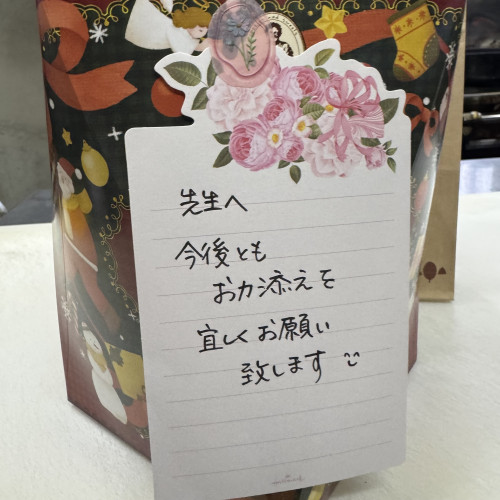 先生へ
今後とも
お力添えを
宜しくお願い
致します
Hallmark